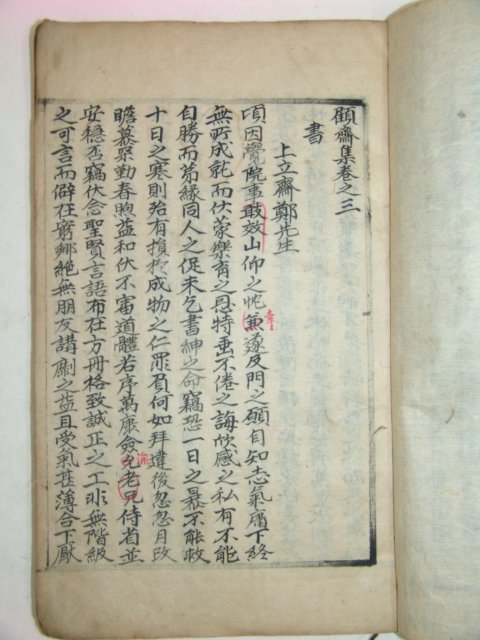 顧齋集卷之三
書
上立齋鄭先生
頃因黌院事敢效山仰之忱兼遂及門之願自知志氣庸下終
無所成就而伏蒙樂育之恩特垂不倦之誨欣感之私有不能
自勝而第緣同人之促未乞書紳之命竊恐一日之暴不能救
十日之寒則殆有損於成物之仁罪負何如拜違後忽忽月改
瞻慕采勤春煦益和伏不審道體若序萬康僉允老兄侍省並
安穩否竊伏念聖賢言語布在方冊格致誠正之工非無階級
之可言而僻在窮鄉絕無朋友講劘之益且受氣甚薄合下厭
幸